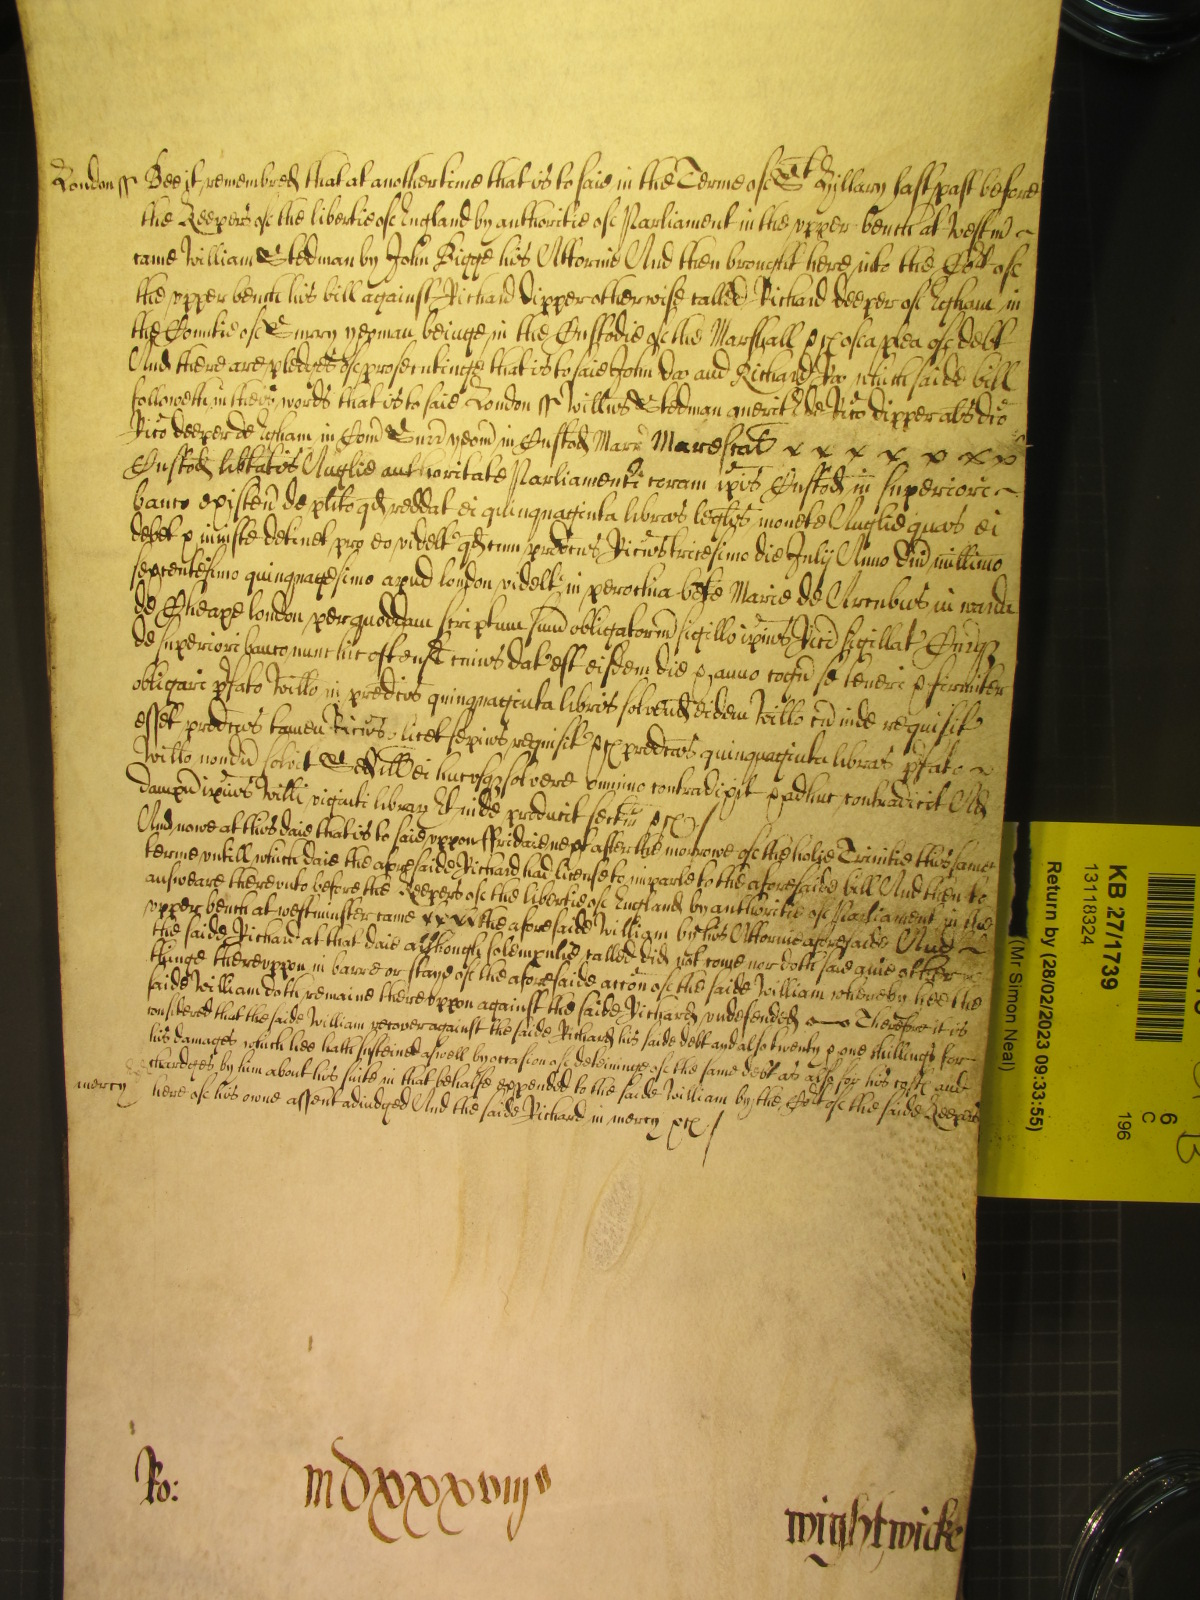 London ss Bee it remembred that at another time that is to saie in the Terme of St Hillary last past before
the Keepers of the libertie of England by authoritie of Parliament in the upper bench at Westm
came William Stedman by John Bigge his Attornie And then brought here into the Cort of
the upper bench his bill against Richard Dipper otherwise called Richard deeper of Egham in
the Countie of Surrey yeoman beinge in the Custodie of the Marshall &c of a plea of debt
And there are pledges of prosecutinge that is to saie John Doo and Richard Roo which saide bill
followeth in theis words that is to saie London ss Willms Stedman querit de Rico dipper als dco
Rico deeper de Egham in Com Surr yeom in Custod Marr Marescal x x x x x x x
Custod libtatis Anglie authoritate Parliamenti coram ipis Custod in superiori
banco existen de plito qd reddat ei quinquaginta libras leglis monete Anglie quas ei
debet & iniuste detinet pro eo videlt qd cum predcus Ricus tricesimo die Julij Anno Dni millimo
sexcentesimo quinquagesimo apud london videlt in parochia bte Marie de Arcubus in warda
de Cheape london per quoddam scriptum suum obligatorm sigillo ipius Rici sigillat Curq
de superiori banco nunc hic ostens cuius dat est eisdem die & anno cogn se teneri & firmiter
obligari pfato Willo in predcis quinquaginta libris solvend eidem Willo cu inde requisit
esset predcus tamen Ricus licet sepius requisit &c predcas quinquaginta libras pfato
Willo nondu solvit Sed ill ei hucusq solvere omnino contradixit & adhuc contradicit Ad
dampnu ipius Willi viginti libray Et inde producit sectm &c
And nowe at this daie that is to saie uppon ffridaie next after the morrowe of the holie Trinitie this same
terme untill which daie the aforesaide Richard had license to imparle to the aforesaide bill And then to
answeare thereunto before the Keepers of the libertie of England by authoritie of Parliament in the
upper bench at westminster came xxxx the aforesaide William by his Attornie aforesaide And
the saide Richard at that daie although solempnlie called did not come nor doth saie anie other
thinge thereuppon in barre or staye of the aforesaide accon of the saide William whereby hee the
saide William doth remaine thereuppon against the saide Richard undefended Therefore it is
considered that the saide William recover against the saide Richard his saide debt and also twenty & one shillings for
his damages which hee hath susteined aswell by occasion of deteininge of the same debt as also for his costs and
chardges by him about his suite in that behalfe expended to the saide William by the Cort of the saide Keepers
mercy here of his owne assent adiudged And the saide Richard in mercy &c
Ro: mdxxxviijo
wightwicke
KB 27/1739
13118324
Return by (28/02/2023 09:33:55)
(Mr Simon Neal)
196
C
6
B